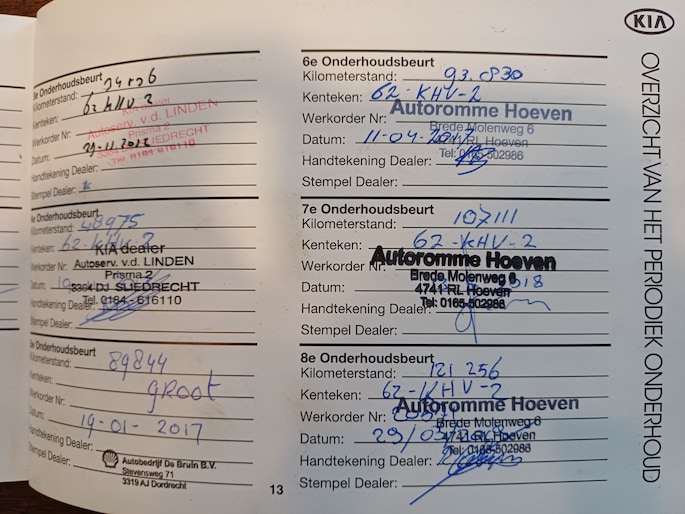 3e Onderhoudsbeurt
Kilometerstand:
Kenteken: 62 KHV 2
Werkorder Nr:
Datum: 29-11-2012
Handtekening Dealer:
Stempel Dealer:
KIA dealer
Autoserv. v.d. LINDEN
Prisma 2
3364 DJ SLIEDRECHT
Tel. 0184-616110
4e Onderhoudsbeurt
Kilometerstand: 48975
Kenteken: 62-KHV-2
Werkorder Nr:
Datum:
Handtekening Dealer:
Stempel Dealer:
KIA dealer
Autoserv. v.d. LINDEN
Prisma 2
3364 DJ SLIEDRECHT
Tel. 0184 - 616110
5e Onderhoudsbeurt
Kilometerstand: 89844
Kenteken:
Werkorder Nr: gROOt
Datum: 19-01-2017
Handtekening Dealer:
Stempel Dealer:
Autobedrijf De Bruin B.V.
Stevensweg 71
3319 AJ Dordrecht
6e Onderhoudsbeurt
Kilometerstand: 93.830
Kenteken: 62-KHV-2
Werkorder Nr:
Datum: 11-04-2017
Handtekening Dealer:
Stempel Dealer:
Autoromme Hoeven
Brede Molenweg 6
4741 RL Hoeven
Tel: 0165-502986
7e Onderhoudsbeurt
Kilometerstand: 107111
Kenteken: 62-KHV-2
Werkorder Nr:
Datum:
Handtekening Dealer:
Stempel Dealer:
Autoromme Hoeven
Brede Molenweg 6
4741 RL Hoeven
Tel: 0165-502986
8e Onderhoudsbeurt
Kilometerstand: 121 256
Kenteken: 62-KHV-2
Werkorder Nr:
Datum:
Handtekening Dealer:
Stempel Dealer:
Autoromme Hoeven
Brede Molenweg 6
4741 RL Hoeven
Tel: 0165-502986
13
KIA
OVERZICHT VAN HET PERIODIEK ONDERHOUD